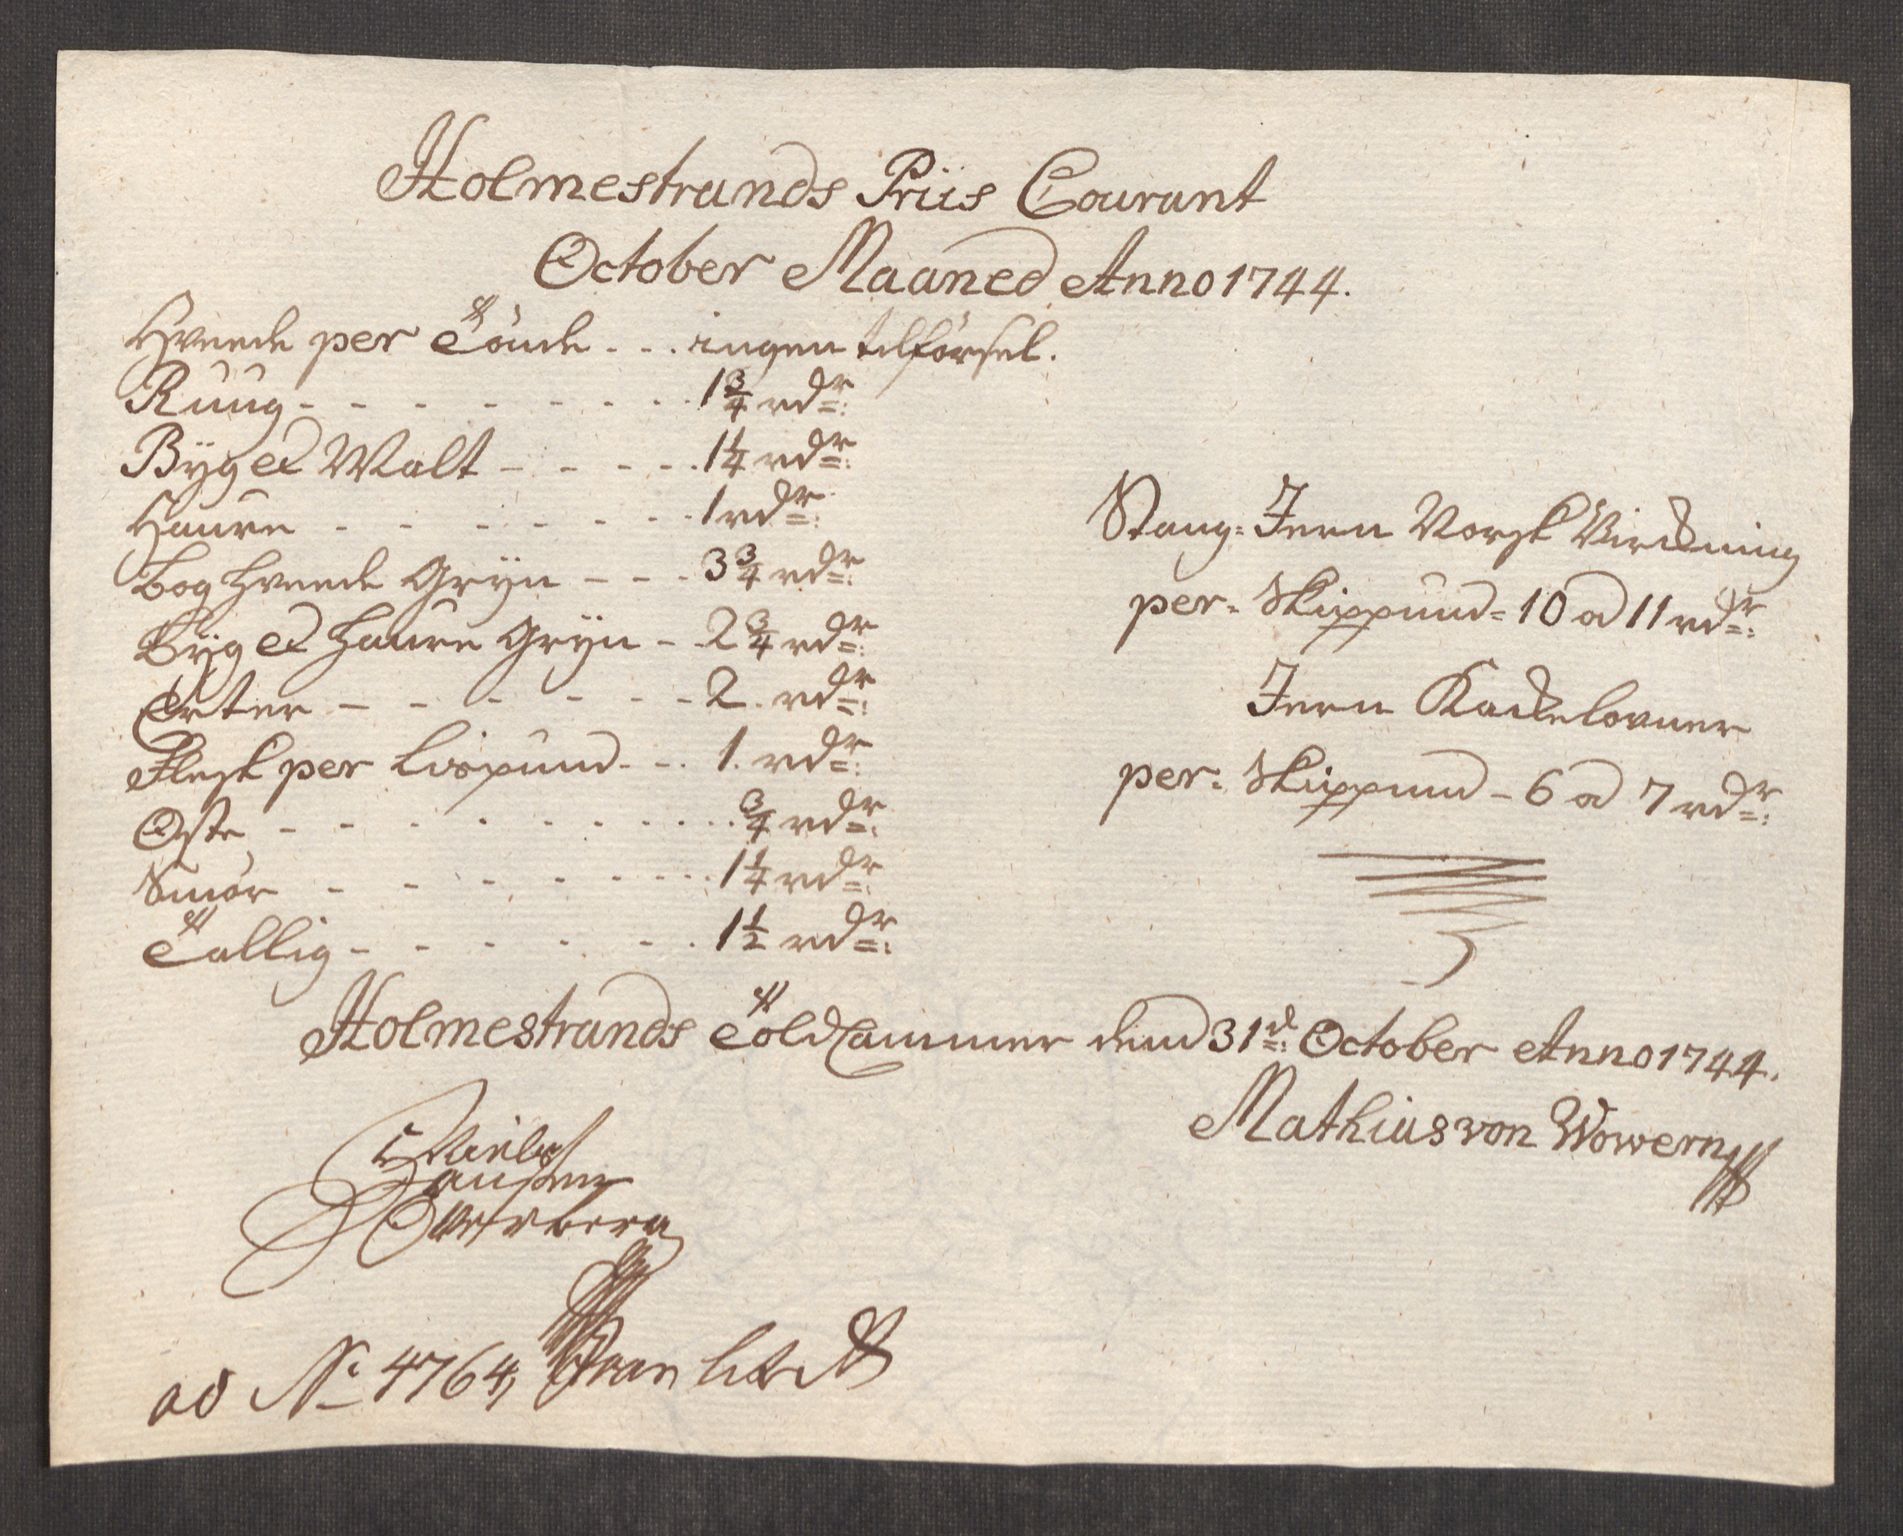 Holmestrands Priis Courant
October Maaned Anno 1744.
Hveede per Tönde - - - ingen tilförsel.
Ruug - - - - - - - - 1 3/4 rdr:
Byg et Malt - - - - - 1 1/4 rdr:
Haure - - - - - - - 1 rdr:
Boghveede Grÿn - - - 3 3/4 rdr:
Bÿg et Haure Grÿn - - 2 3/4 rdr:
Erter - - - - - - - 2. rdr:
Flesk per Lispund - - - 1. rdr:
Oste - - - - - - - - - 3/4 rdr:
Smör - - - - - - - - 1 1/4 rdr:
Tallig - - - - - - - 1 1/2 rdr:
Stang-Jern Norsk Virckning
per. Skippund - 10 a 11 rdr:
Jern Kackelovner
per. Skippund - 6 a 7 rdr:
Holmestrands Told Cammer dend 31d: October Anno 1744.
Mathias von Wowern
Niels
Hansen
Overberg
ad No 4764,